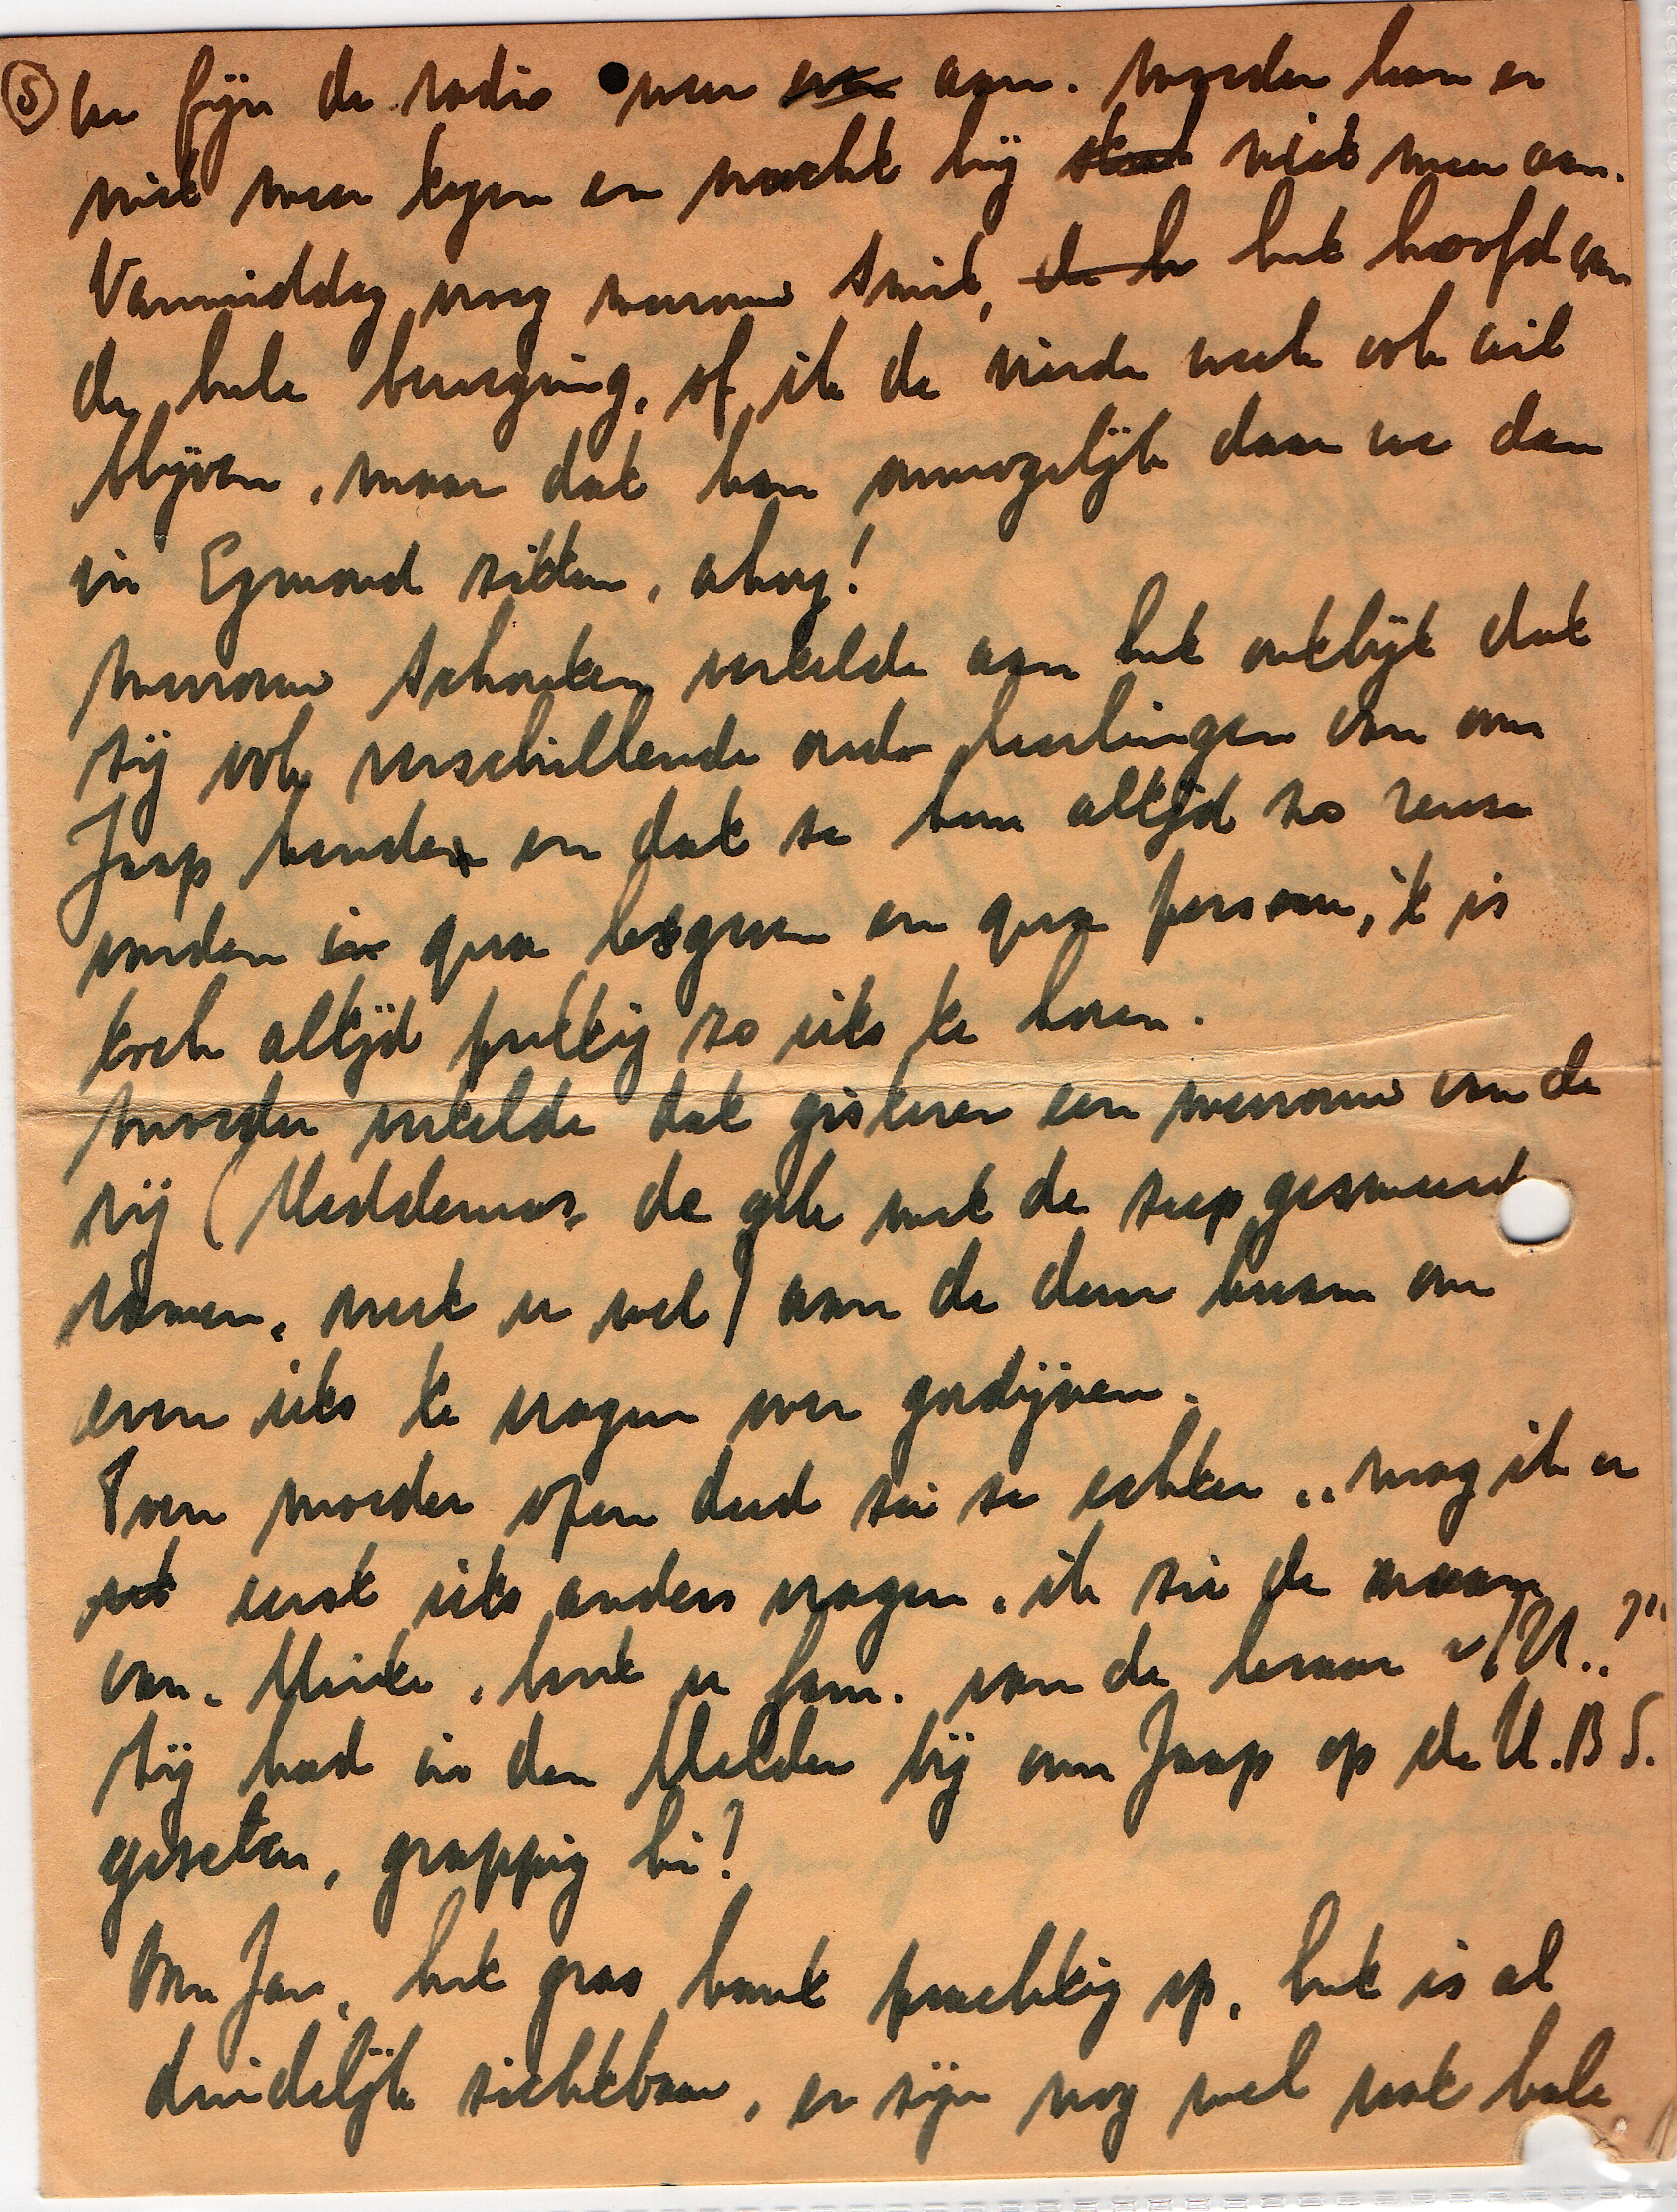 ⑤ en fijn de radio weer aan. moeder kan er
niet meer tegen en mocht hij niet meer aan.
Vanmiddag vroeg mevrouw Smit, het hoofd van
de hele beweging, of ik de vierde week ook wil
blijven, maar dat kan onmogelijk daar we dan
in Egmond zitten, ahoy!
mevrouw Schouten vertelde aan het ontbijt dat
zij ook verschillende oude leerlingen van oom
Jaap kenden en dat ze hem altijd zo reuze
vonden qua lesgeven en qua persoon, 't is
toch altijd prettig zo iets te horen.
moeder vertelde dat gisteren een mevrouw van de
rij (Meddemas, de gele met de zeep gesmeerde
ramen, weet u wel) aan de deur kwam om
even iets te vragen over gordijnen.
Toen moeder open deed zei ze echter „mag ik er
eerst iets anders vragen, ik zie de naam
van. Meule, bent u fam. van de leraar v/d U..?"
Zij had in den Helder bij oom Jaap op de H.B.S.
gezeten, grappig hè?
Oom Jan, het gras komt prachtig op, het is al
duidelijk zichtbaar, er zijn nog wel wat kale